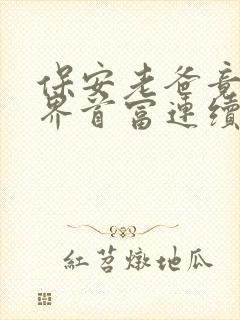 保安老爸竟
界首富連續
紅苕燉地瓜